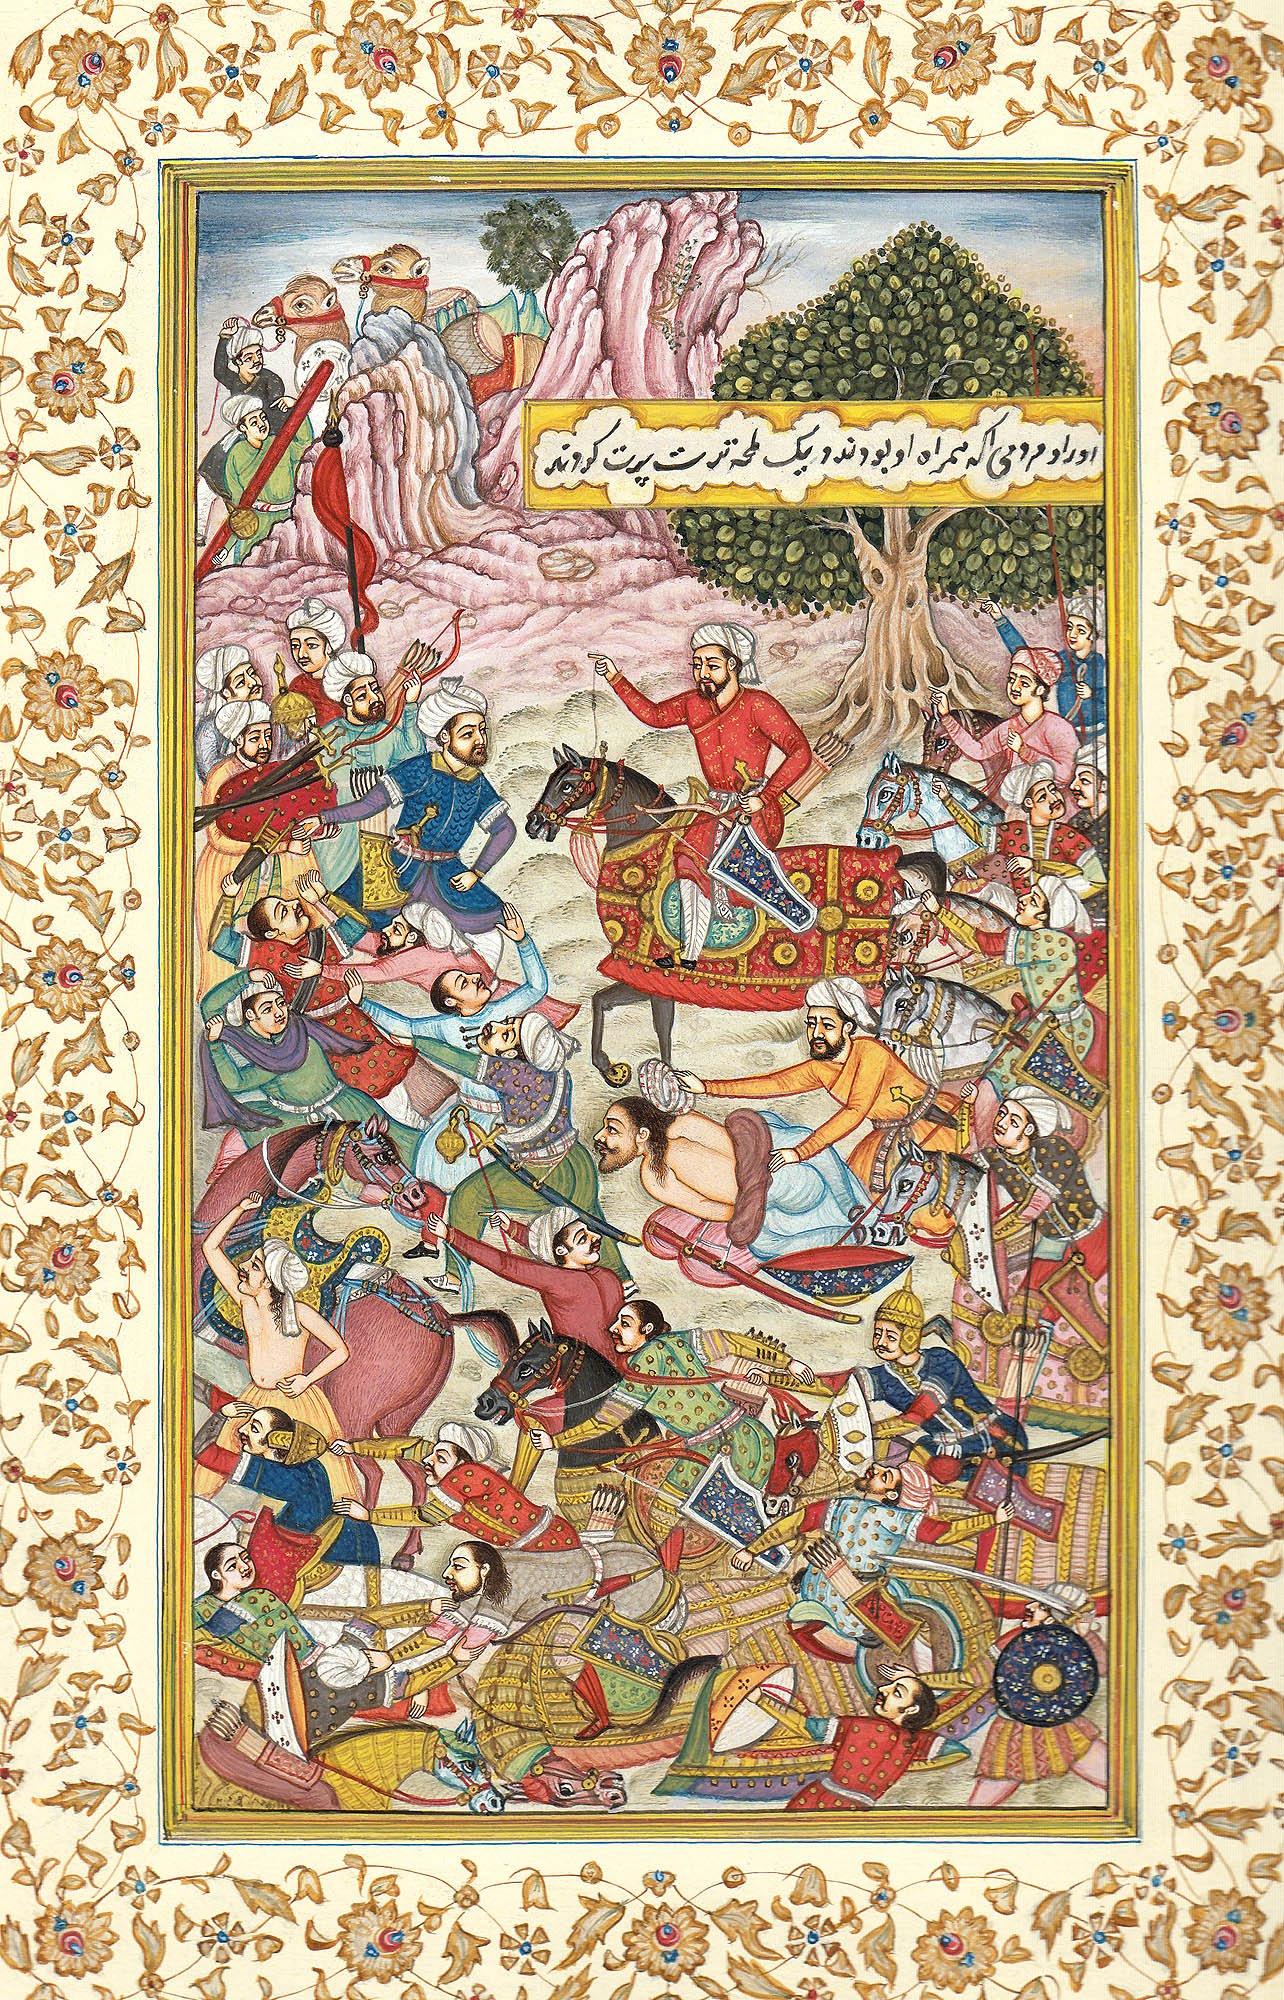 اورا و مردمی که همراه او بودند در یک لمحه ترت پرت کردند